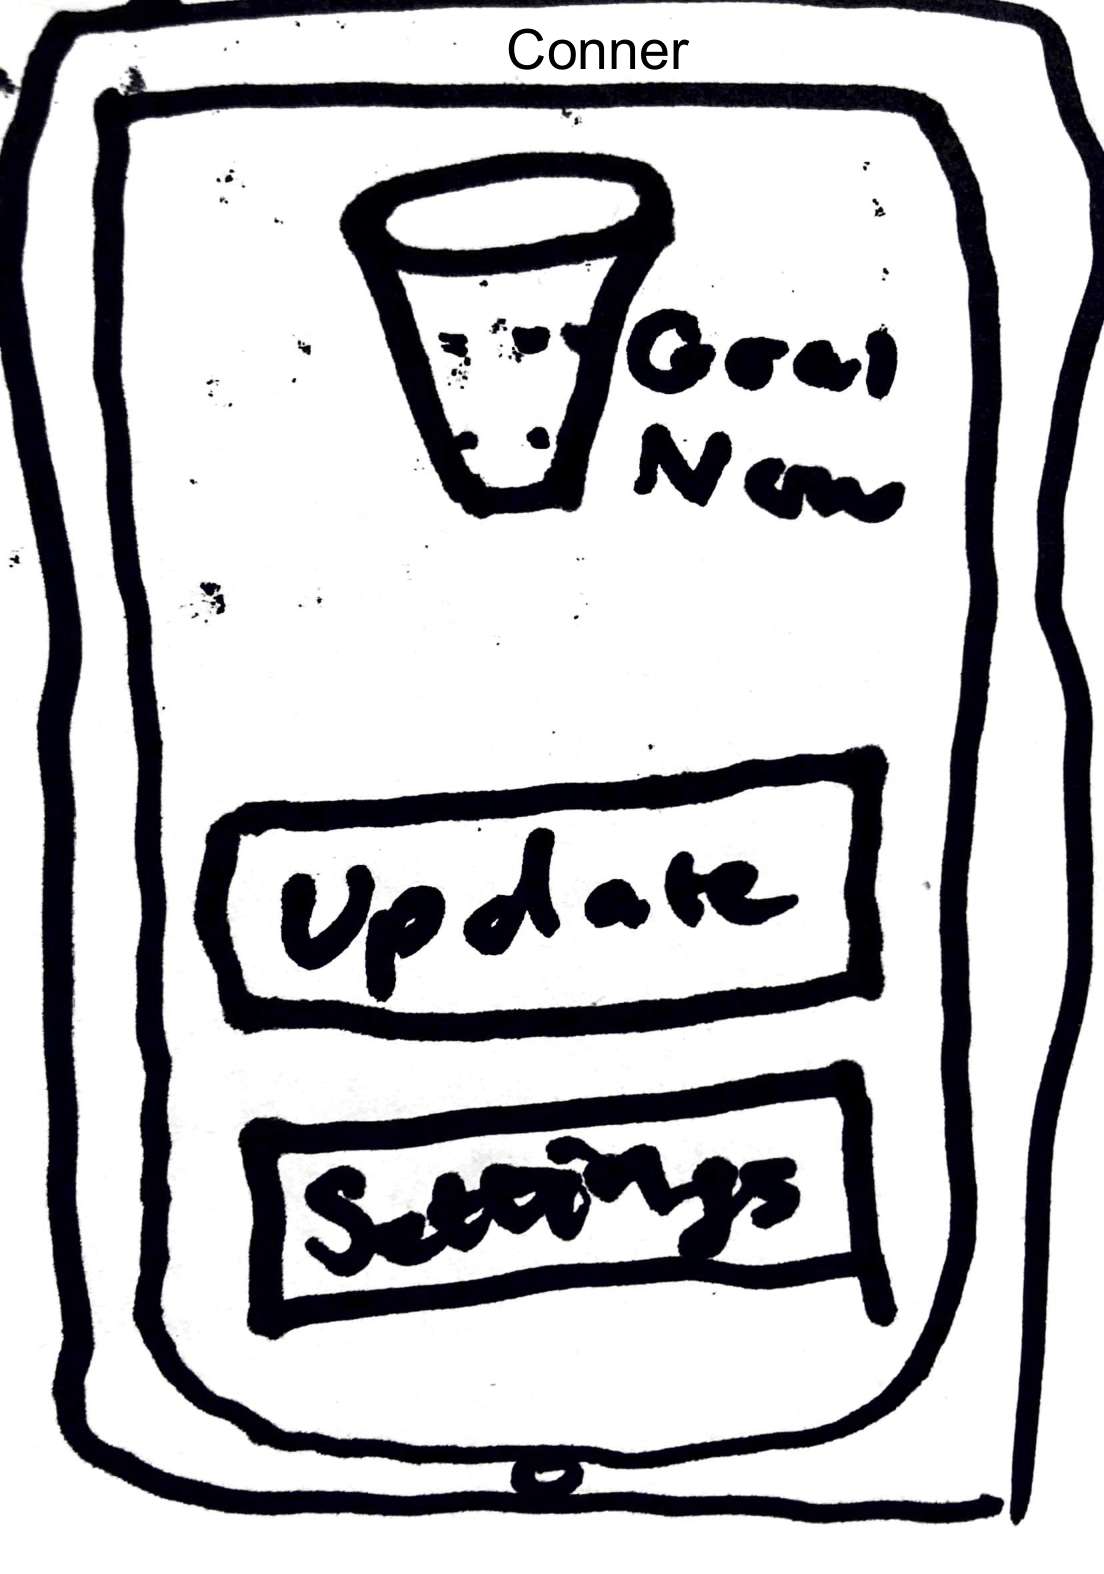 Conner
Goal
Now
Update
Settings